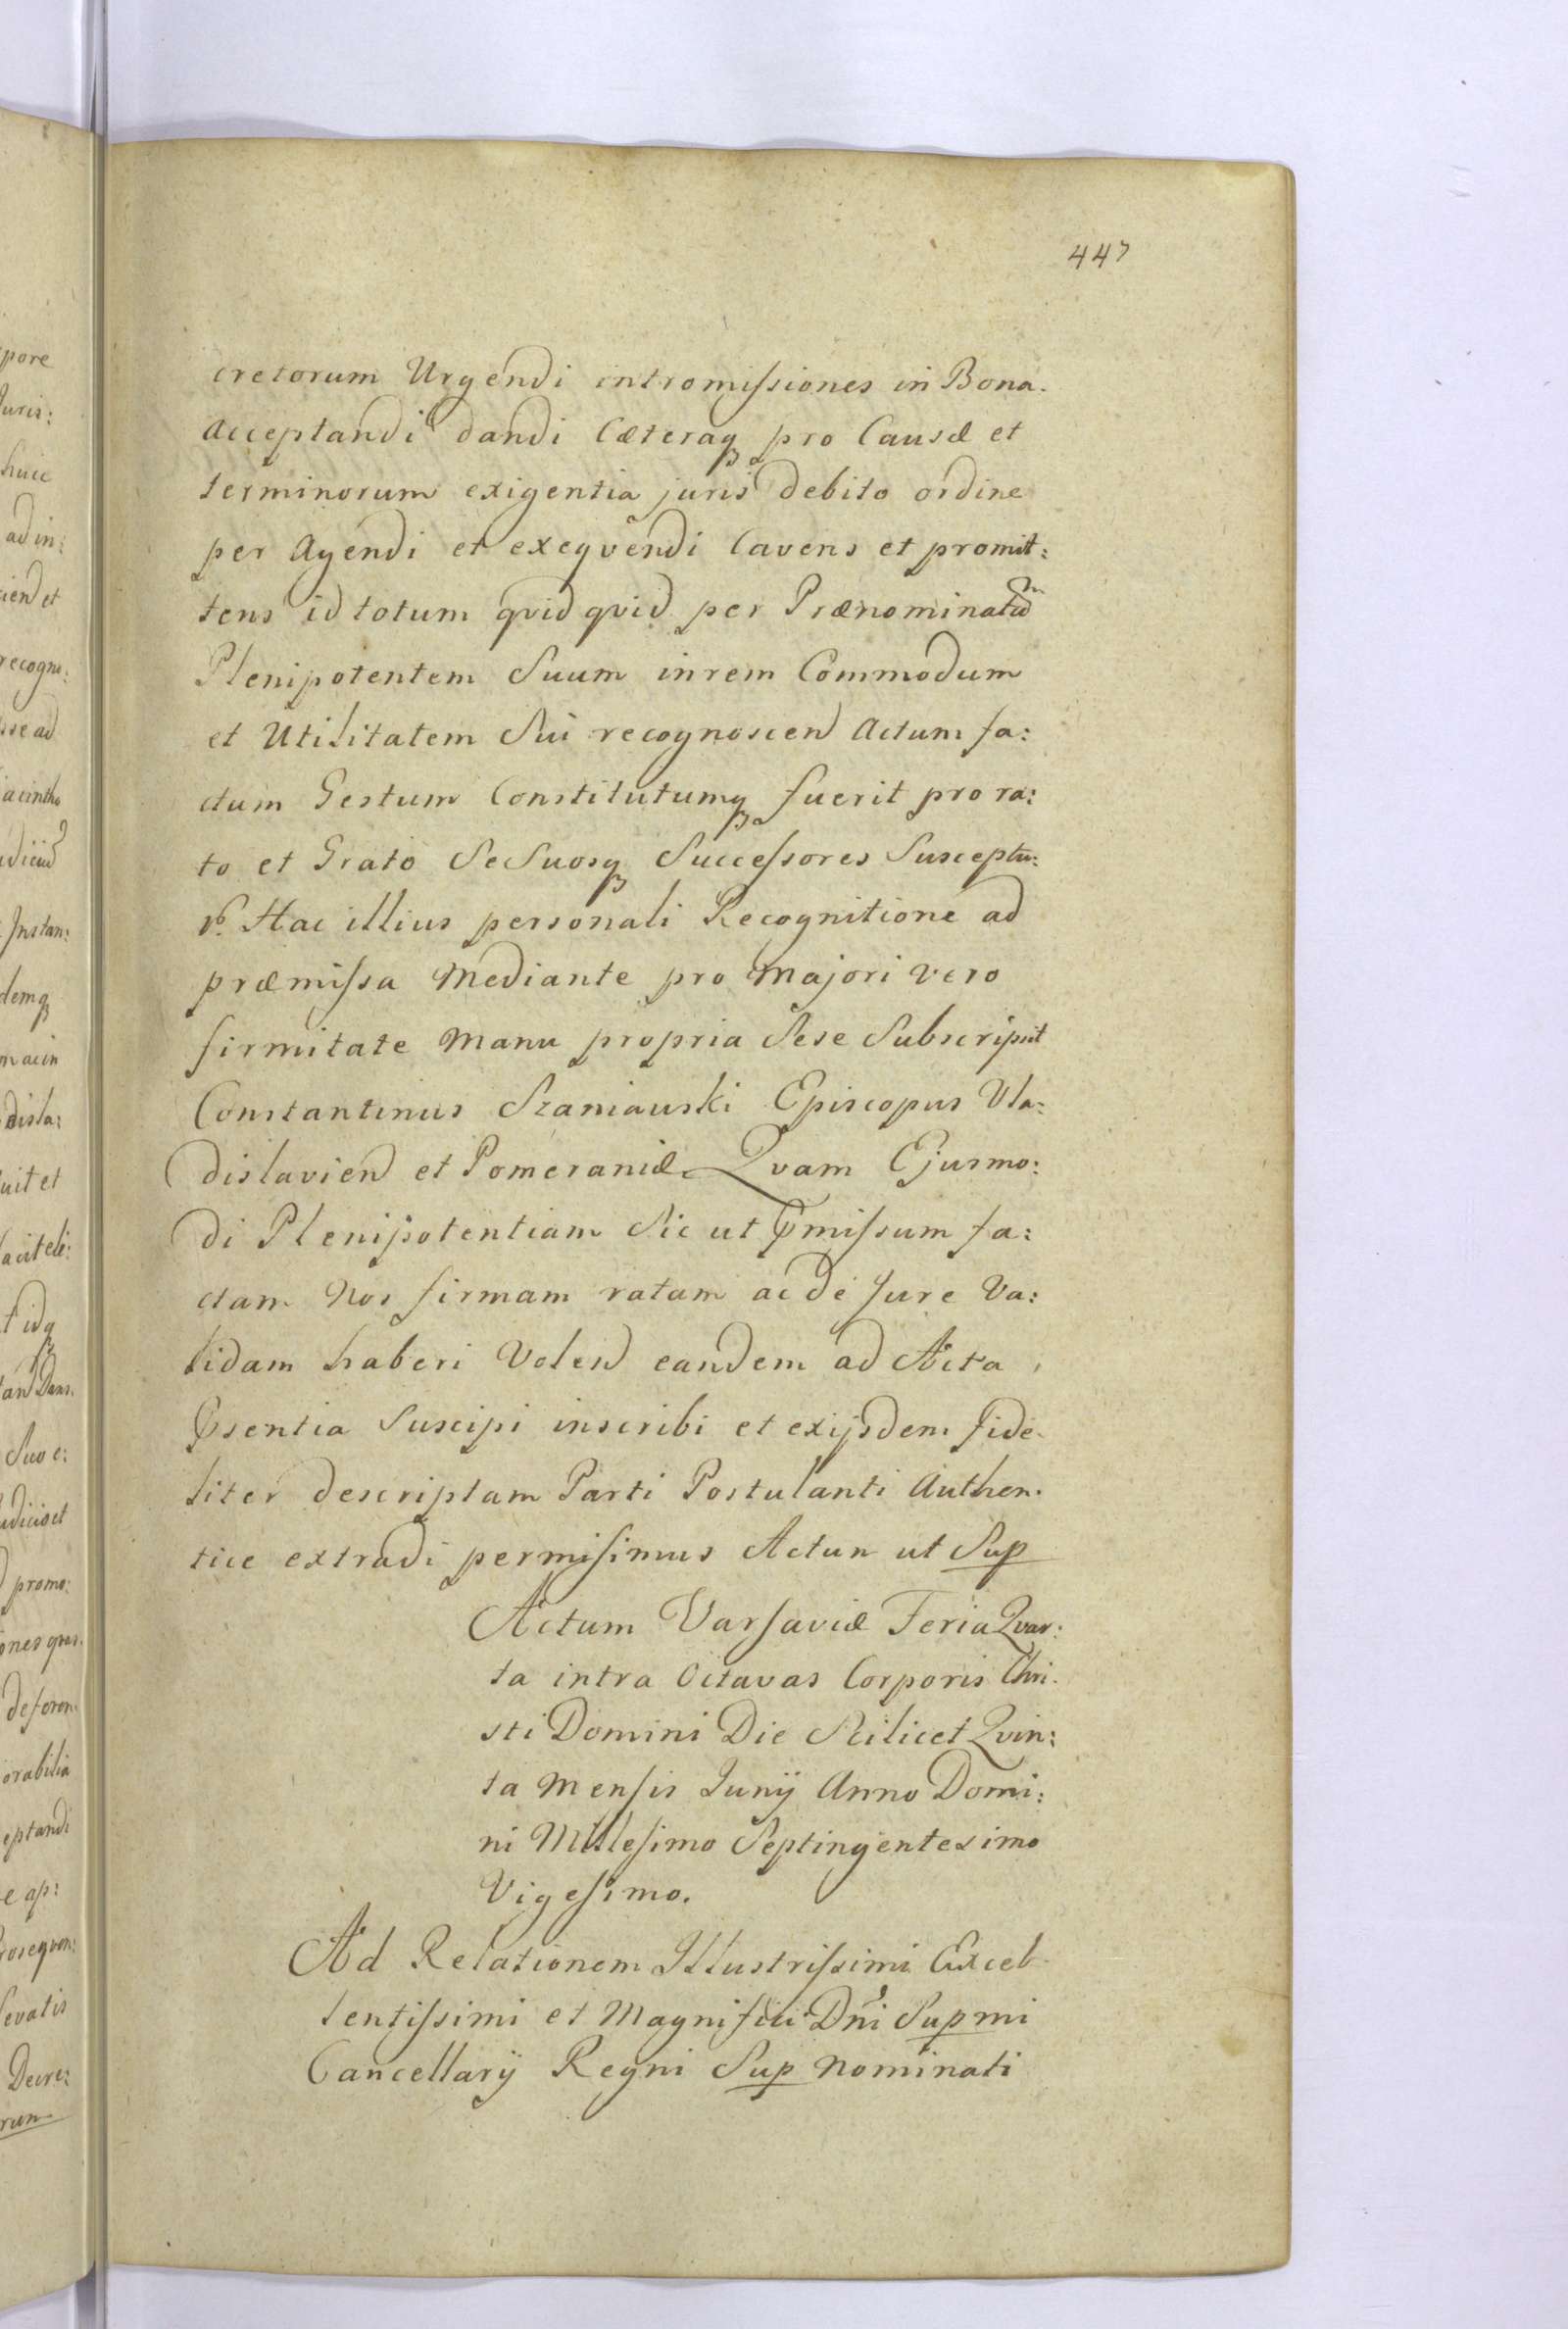 447
cretorum Urgendi intromissiones in Bona.
acceptandi dandi Cæteraq pro Causæ et
terminorum exigentia juris debito ordine
per agendi et exeqvendi Cavens et promit:
tens id totum qvid qvid per Prænominatum
Plenipotentem Suum in rem Commodum
et Utilitatem Sui recognoscen actum fa:
ctum Gestum Constitutumq fuerit pro ra:
to et Grato Se Suosq Successores Susceptu:
r. Hac illius personali Recognitione ad
præmissa Mediante pro majori vero
firmitate manu propria Sese Subscripsit
Constantinus Szaniawski Episcopus Vla:
dislavien et Pomeraniæ. Qvam Ejusmo:
di Plenipotentiam Sic ut pmissum fa:
ctam Nos firmam ratam ac de Jure Va:
lidam haberi Volen eandem ad Acta
psentia Suscipi inscribi et exijsdem fide
liter descriptam Parti Postulanti Authen.
tice extradi permisimus Actun ut Sup
Actum Varsaviæ Feria Qvar:
ta intra Octavas Corporis Chri.
sti Domini Die Scilicet Qvin:
ta Mensis Junij Anno Domi:
ni Millesimo Septingentesimo
Vigesimo.
Ad Relationem Illustrissimi Excel
lentissimi et Magnifici Dni Supmi
Cancellarij Regni Sup Nominati
pore
Juris:
huic
ad in:
recogno:
sse ad
Instan:
demq
disla:
uit et
idq
Suo e:
promo:
orabilia
eptandi
e ap:
Decre:
rum